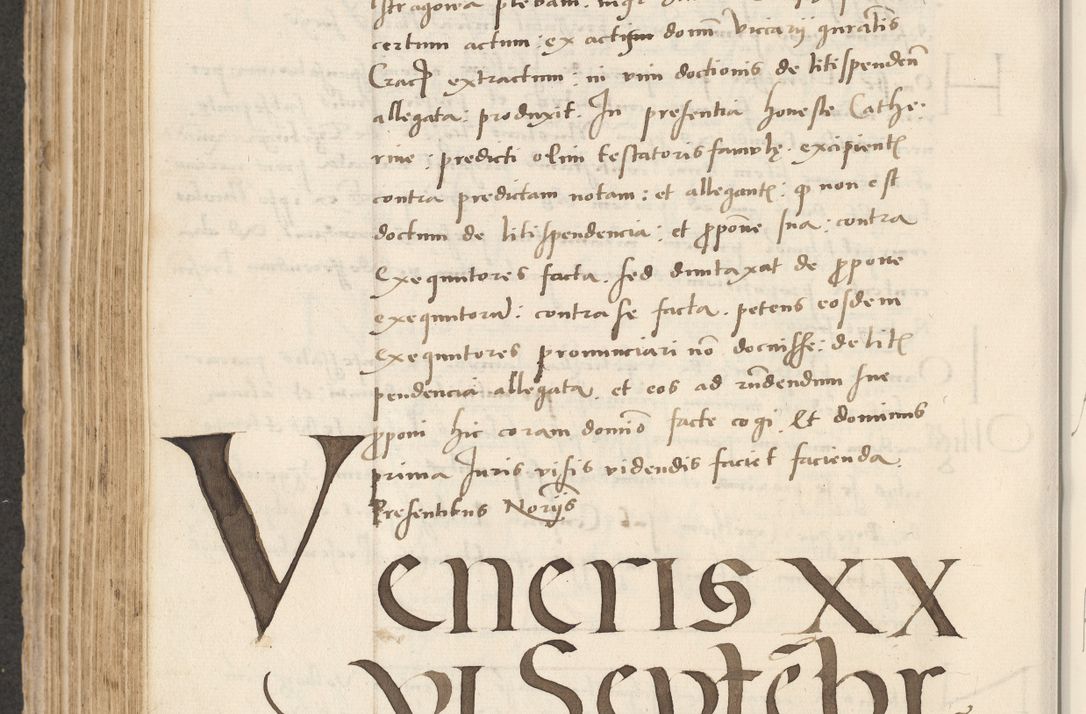 certum actum : ex actis domī Vicarij gnralis
Crac extractum : in vim doctionis de litispendeñ
allegata : produxit. In presentia honeste Cathe-
rine : predicti olim testatoris famulę. excipient
contra predictam notam : et allegant : q non est
doctum de litispendencia : et ꝓpoñe sua : contra
Exequutores facta. sed duntaxat de ꝓpone
exequutorū : contra se facta. petens eosdem
Exequutores pronunciari nō docuisse : de lit
pendencia allegata. et eos ad rñdendum sue
ꝓponi hic coram domīo facte cogi. Et dominus
prima Iuris visis videndis faciet facienda.
Presentibus Norijs
Veneris XX
VI Septēbr